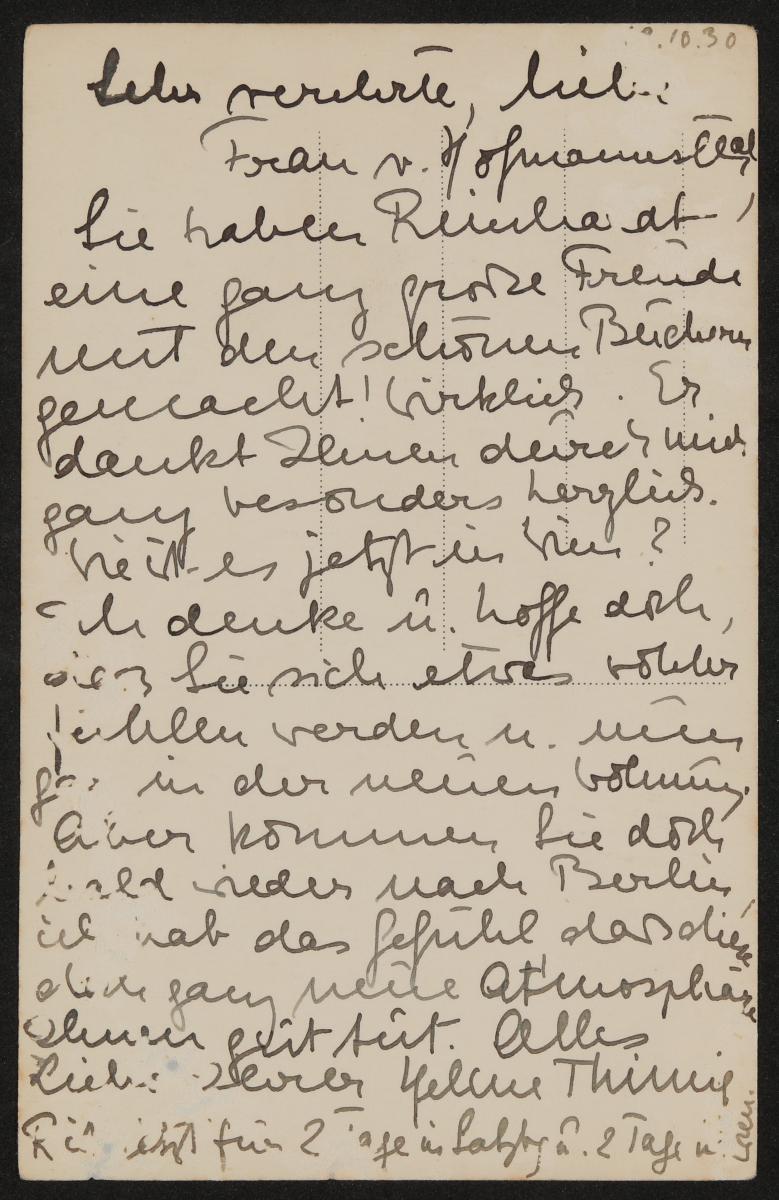 10.30
Sehr verehrte, liebe
Frau v. Hofmannsthal,
Sie haben Reinhardt
eine ganz große Freude
mit den schönen Büchern
gemacht! Wirklich. Er
dankt Ihnen durch mich
ganz besonders herzlich.
Wie ist es jetzt in Wien?
Ich denke u. hoffe doch,
dass Sie sich etwas wohler
fühlen werden u. nun
gar in der neuen Wohnung.
Aber kommen Sie doch
bald wieder nach Berlin,
ich hab das Gefühl dass diese
doch ganz neue Atmosphäre
Ihnen gut tut. Alles
Liebe Ihrer Helene Thimig
R. ist jetzt für 2 Tage in Salzbg u. 2 Tage in Wien.